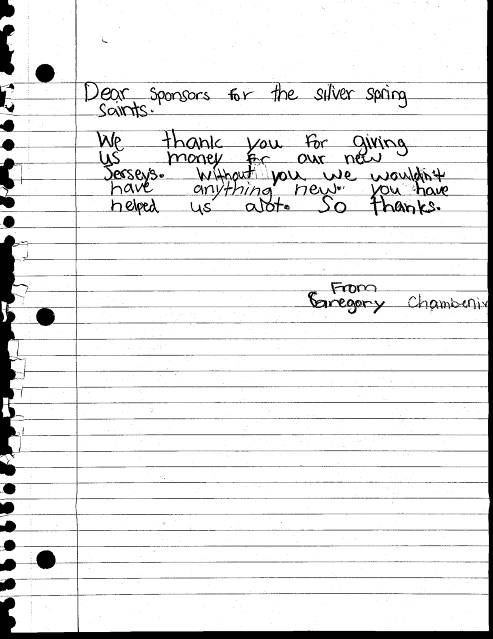 Dear sponsors for the silver spring
saints.
We thank you for giving
us money for our new
Jerseys. Without you we wouldn't
have anything new. you have
helped us alot. So thanks.
From